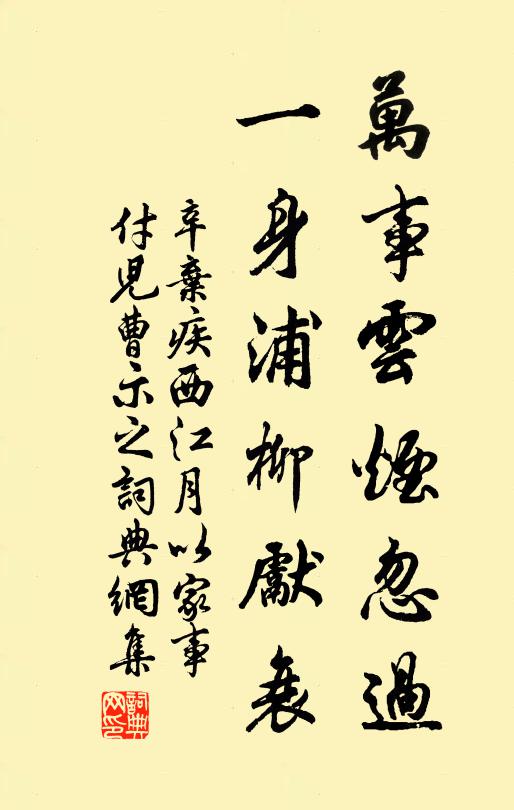 萬事雲煙忽過
一身浦柳獻衰
辛棄疾西江月以家事
付児曹示之詞典網集
詞典
网印